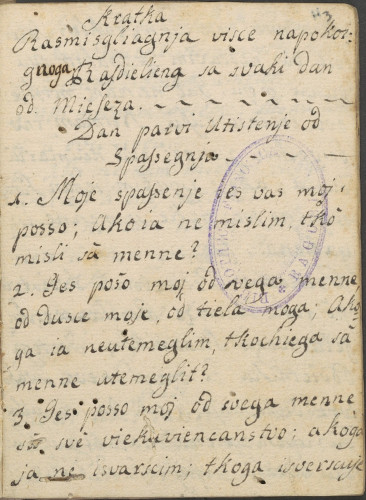 Kratka
Rasmisgliagnja visce napokor=
gnoga Rasdielieng sa svaki Dan
od Mieseza.
Dan parvi Utistenje od
Spassegnja
1. Moje spassenje jes vas moj
posso; Ako ia ne mislim, tkò
misli sà menne?
2. Jes posso moj od svega menne,
od Dusce moje, od tiela moga; Ako
ga ia neutemeglim, tkochiega sà
menne utemeglit?
3. Jes posso moj od svega menne
sà svê viekuviencanstvo; a koga
ja ne isvarscim; tkoga isverscuje
RAGU